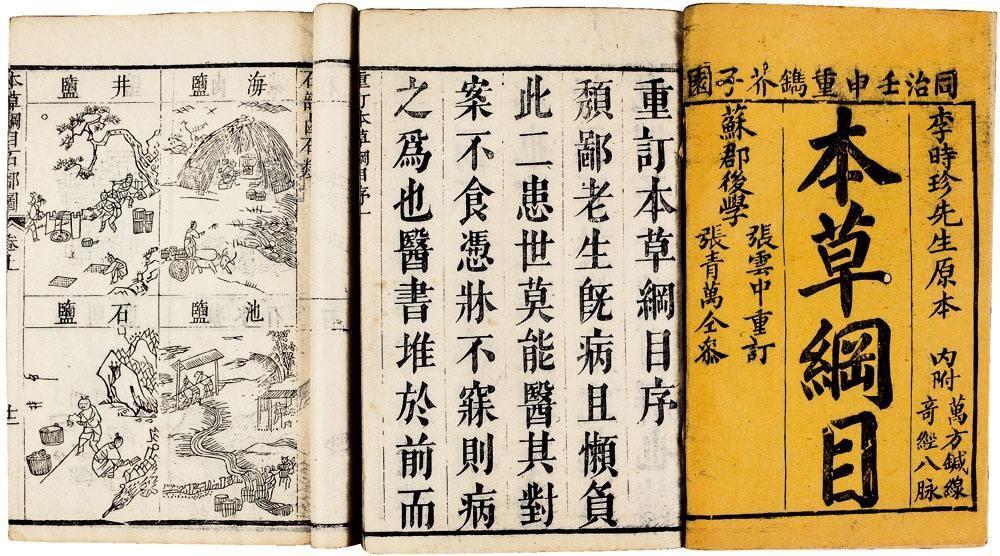 同治壬申重鐫芥子園
李時珍先生原本
內附
萬方鍼線
奇經八脉
本草綱目
蘇郡後學
張雲中重訂
張青萬仝參
重訂本草綱目序
頽鄙老生旣病且懶負
此二患世莫能醫其對
案不食憑牀不寐則病
之爲也醫書堆於前而
重訂本草綱目序
石部鹵石類
海鹽
井鹽
池鹽
石鹽
本草綱目石部圖